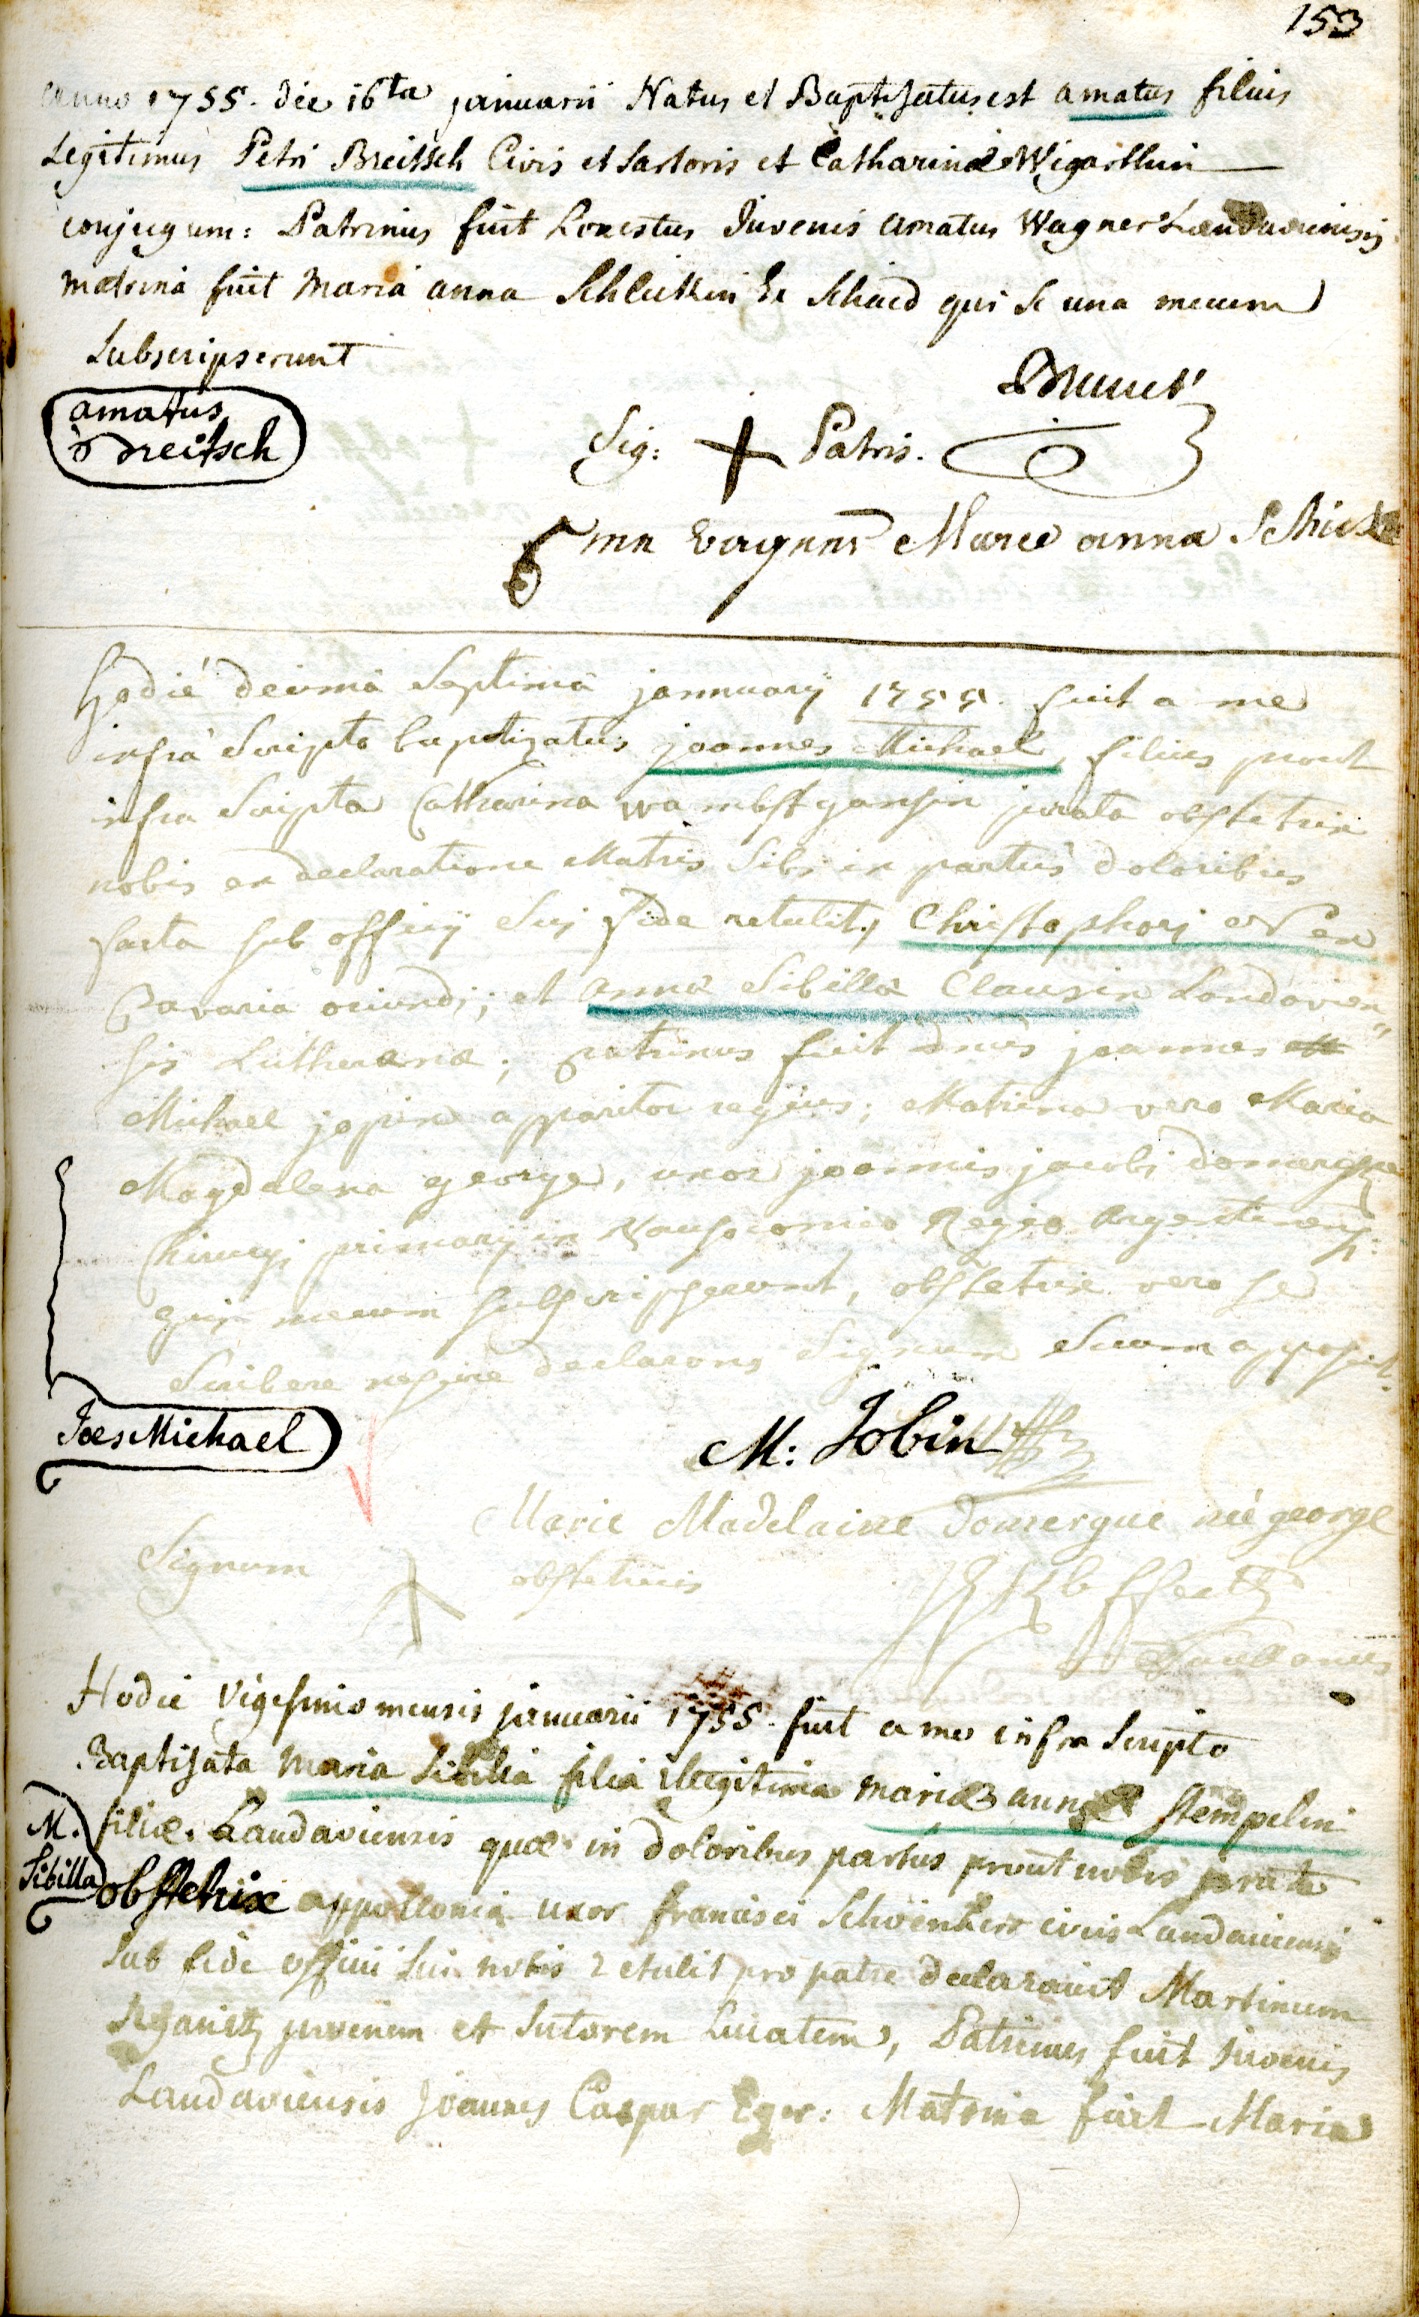 153
Anno 1755. die 16ta januarii Natus et Baptisatus est amatus filius
Legitimus Petri Breitsch Civis et Sartoris et Catharinæ Wigarthin
conjugum: Patrinus fuit honestus Juvenis amatus Wagner Landaviensis
matrina fuit Maria anna Schlickin Ex qui se una mecum
Subscripserunt
amatus
Breitsch
Sig: + Patris.
Marie anna
Hodie decima Septima januarij 1755. fuit a me
infra Scripto baptizatus joannes Michael, filius prout
infra Scripta Catharina wambstgansin jurata obstetrix
nobis ex declaratione Matris Sibi in partus doloribus
facta sub officij Sui fide retulit, Christophori ex
Bavaria oriundi; et anna Sibilla Clausin Landavien-
sis Lutheranæ; patrinus fuit dnus joannes
Michael jopin apparitor regius; Matrina vero Maria
Magdalena george, uxor joannis jacobi domergue
Chirurgi primarij in Nausocomio Regio Argentinensi
qui mecum subscripserunt, obstetrix vero se
Scribere nescire declarans Signum Suum apposuit.
Joes Michael
M: Jobin
Marie Madelaine Domergue née george
Signum obstetricis
Hodie Vigesimo mensis januarii 1755. fuit a me infra Scripto
Baptisata Maria Sibilla filia illegitima mariæ annæ Stempelin
M.
Sibilla
filiæ Landaviensis quæ in doloribus partus prout nobis jurata
obstetrix appollonia uxor francisci civis Landaviensis
sub fide officii sui nobis retulit pro patre declaravit Martinum
juvenem et Sutorem, Patrinus fuit juvenis
Landaviensis Joannes Caspar Eger: Matrina fuit Maria